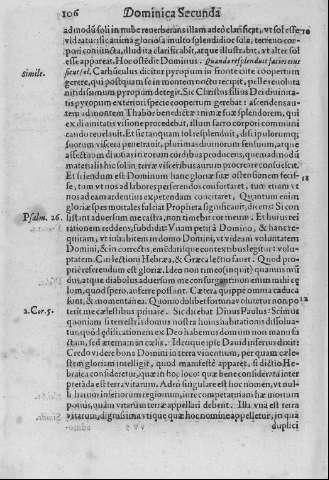 106 Dominica Secunda
admodū soli in nube reuerberans illam adeò clarificet, vt sol esse 10
videatur: sic anima gloriosa multo splendidior sole, terreno cor-
pori coniuncta, illud ita clarificabit, atque illustrabit, vt alter sol
esse appareat. Hoc ostēdit Dominus. Quando resplenduit facies eius
simile. sicut sol. Carbūculus dicitur pyropum in fronte cute coopertum
gerere, qui postquam se in montem recepit, pelle reuoluta
nitidissimum pyropum detegit. Sic Christus filius Dei diuinita-
tis pyropum exteriori specie coopertum gerebat: ascendens au-
tem in montem Thabor benedictæ animæ suæ splendorem, qui
ex diuinitatis visione procedebat, illum foras corpori communi
cando reuelauit. Et sic tanquam sol resplenduit, discipulorumq;
suorum viscera penetrauit, plurimas diuinorum sensuum, atque
affectuum diuitias in eorum cordibus producens, quemadmodū
materialis hic sol in terræ visceribus aurum procreare consueuit.
Et sciendum est Dominum hanc gloriæ suæ ostensionem fecis- 18
se, tum vt nos ad labores perferendos confortaret, tum etiam vt
nos ad eam ardentius expetendam concitaret. Quantum enim
gloriæ spes mortales fulciat Propheta significauit, dicens: Si con
Psalm. 26. sistant aduersum me castra, non timebit cor meum. Et huius rei
rationem reddens, subdidit: Vnam petij à Domino, & hanc re-
quiram, vt inhabitem in domo Domini, vt videam voluntatem
Domini, & in correctis, emendatisque contextibus legitur: volup-
tatem. Cui lectioni Hebræa, & Græca lectio fauet. Quod pro-
priè referendum est gloriæ. Ideo non timeo (inquit) quamuis mū
dus, atque diabolus aduersum me consurgant: non enim mihi cę
lum, quod spero, auferre possunt. Cætera quippe omnia caduca
sunt, & momentanea. Quomodolibet fortuna voluetur non po 12
2. Cor. 5. terit me cælestibus priuare. Sic dicebat Diuus Paulus: Scimus
quoniam si terrestris domus nostra huius habitationis dissolua-
tur, quòd ædificationem ex Deo habemus domum non manu fa
ctam, sed æternam in cælis. Idemque ipse Dauid disertè dixit:
Credo videre bona Domini in terra viuentium, per quam cæle-
stem gloriam intelligit, quod manifestè apparet, si dictio He-
bræa consideretur, quæ in hoc loco: quæ bene considerata inter
pretada est terra vitarum. Adeò singulare est hoc nomen, vt nul-
li harum inferiorum regionum, intercapitaniarum hæ mortuum
potius, quàm vitarum terræ appellari debent. Illa vna est terra
vitarum, dignissima vtique quæ hoc nomine appelletur, in qua
duplici